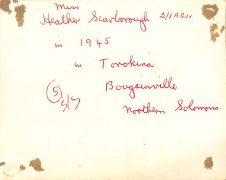 Miss
Heather Scarborough 2/1 A.G.H
in 1945
in Torokina
Bougainville
Northern Solomons